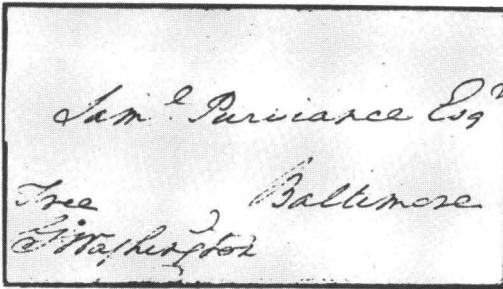 Sam.l Purviance Esqr
Baltimore
Free
G:Washington